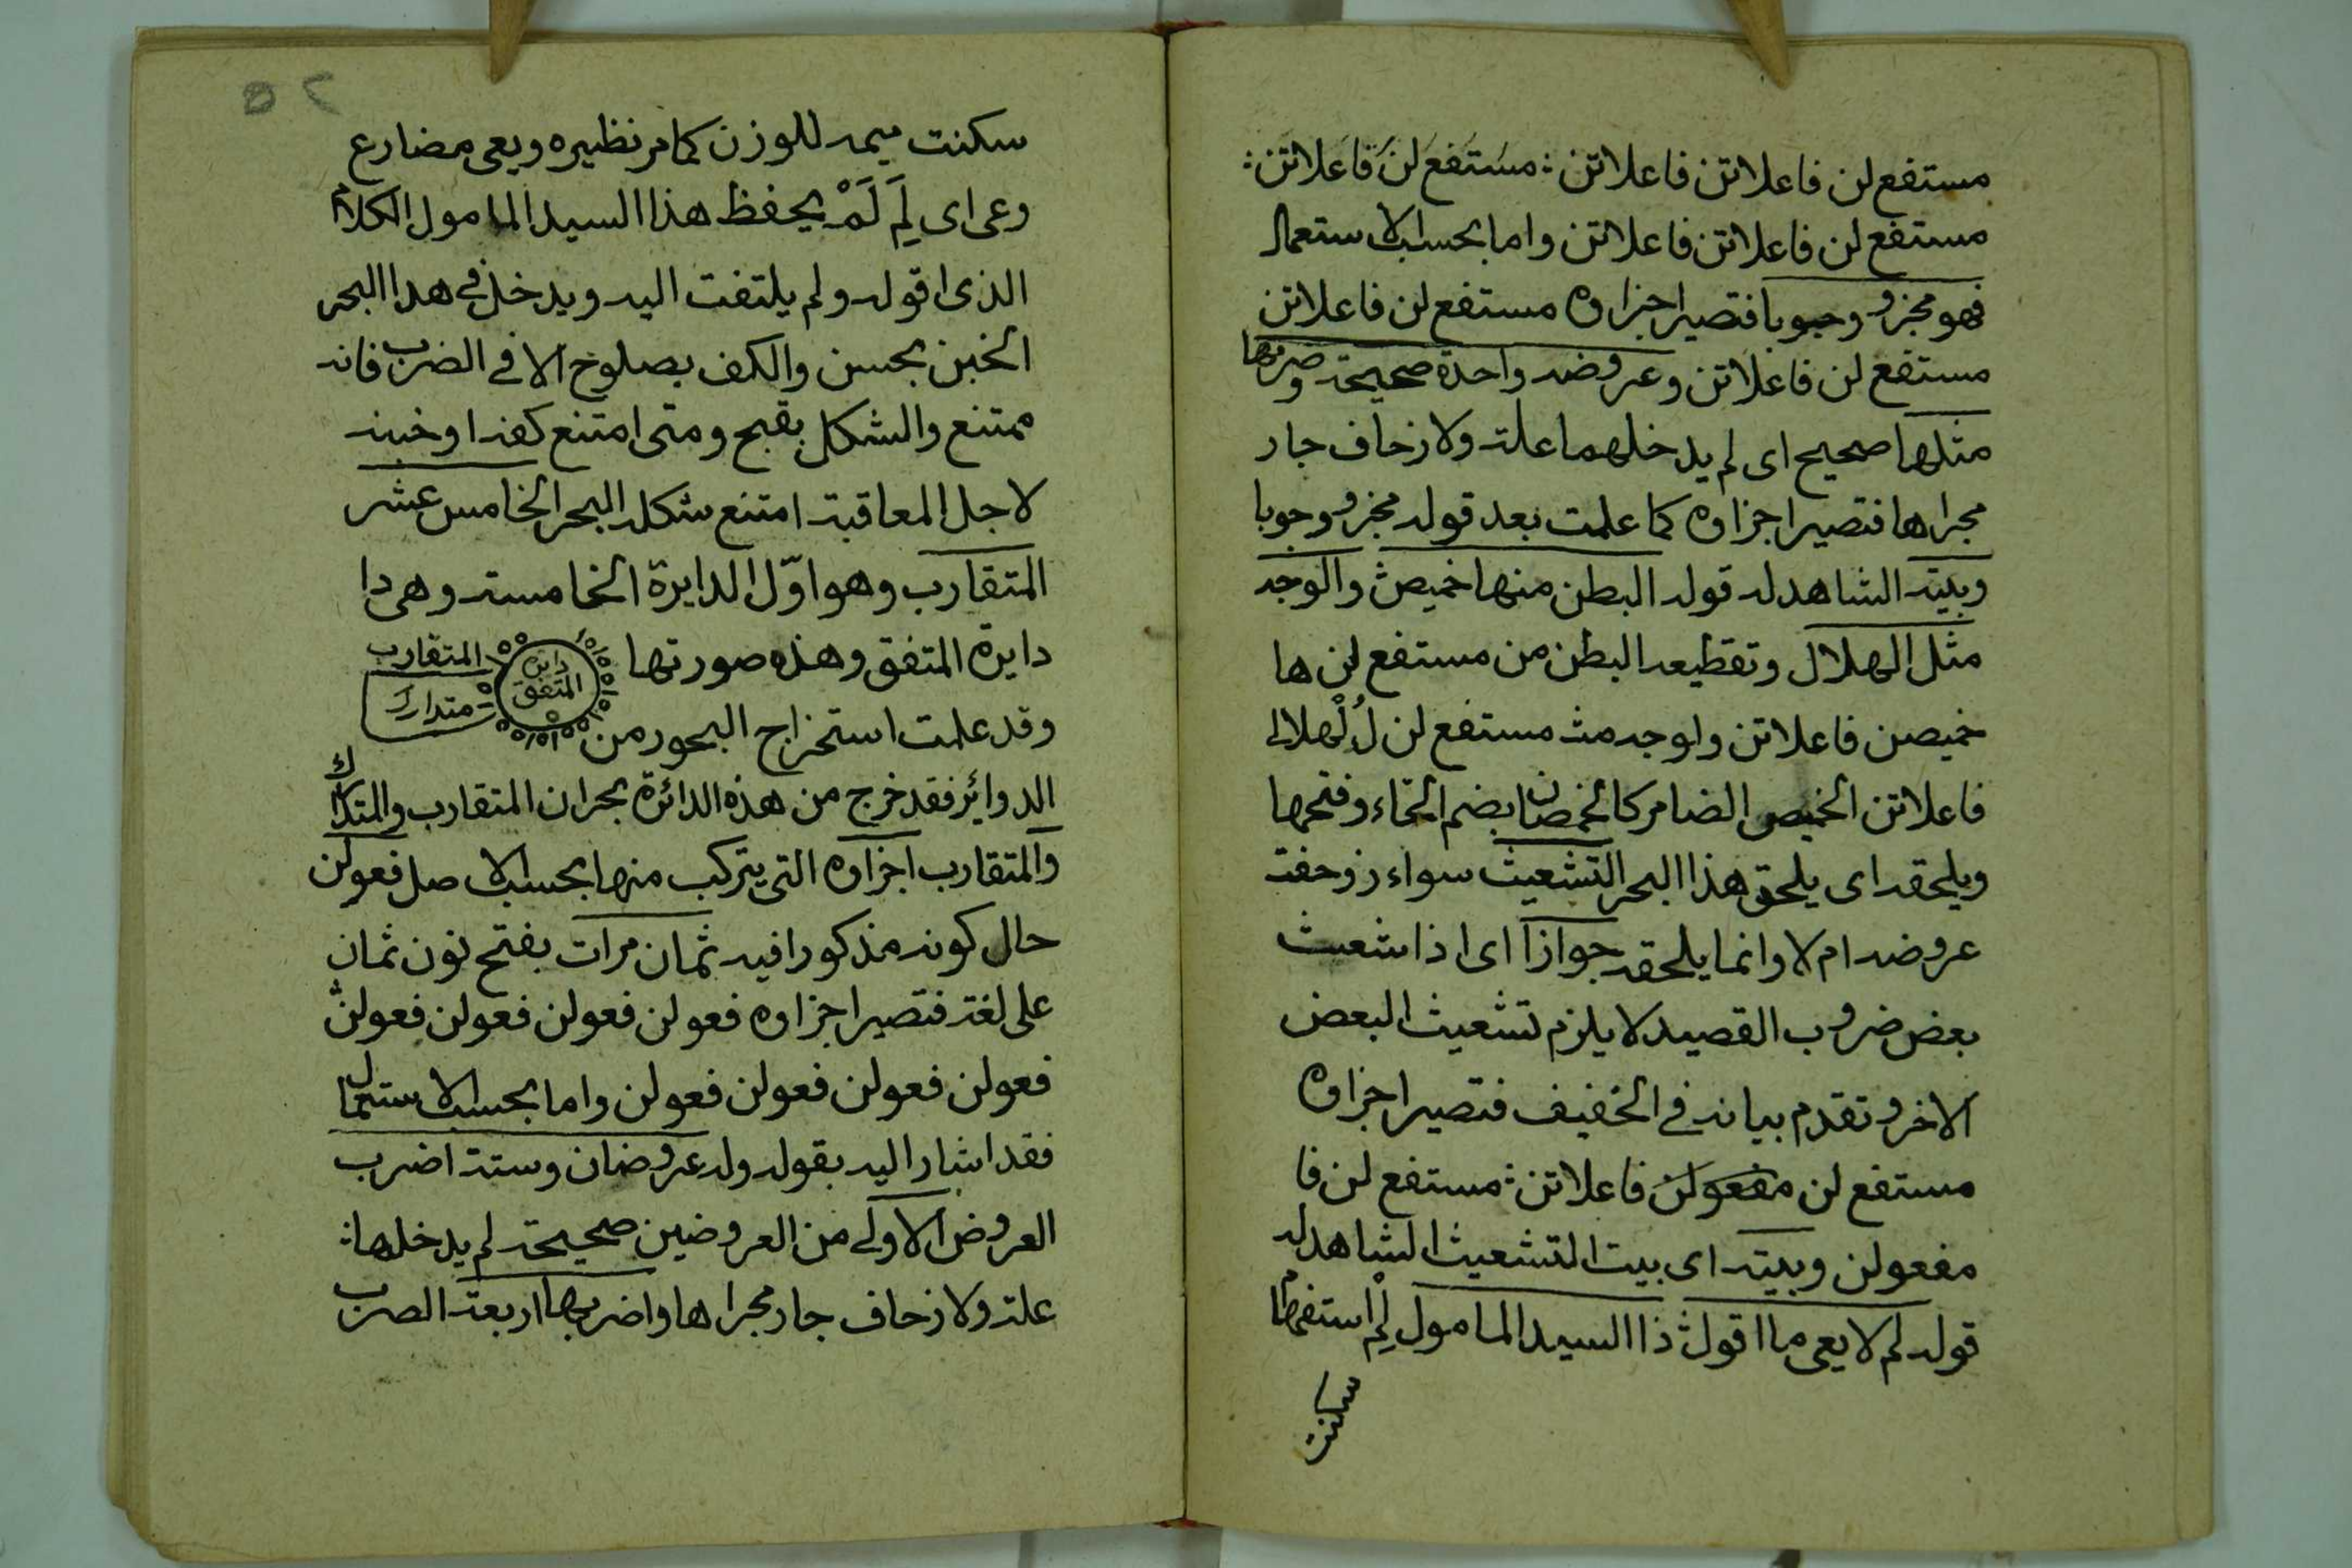 مستفع لن فاعلاتن فاعلاتن : مستفع لن فاعلاتن :
مستفع لن فاعلاتن فاعلاتن واما بحسب الاستعمال
فهو مجزو وجوبا فتصير اجزاوه مستفع لن فاعلاتن
مستفع لن فاعلاتن وعروضه واحدة صحيحة وضربها
مثلها صحيح اى لم يدخلهما علة ولا زحاف جار
مجراها فتصير اجزاوه كما علمت بعد قوله مجزو وجوبا
وبيته الشاهد له قوله البطن منها خميص والوجه
مثل الهلال وتقطيعه البطن من مستفع لن ها
خميصن فاعلاتن ولوجه مث مستفع لن لُلْهلالى
فاعلاتن الخميص الضامر كالخمصان بضم الخاء وفتحها
ويلحقه اى يلحق هذا البحر التشعيث سواء زوحفت
عروضه ام لا وانما يلحقه جوازا اى اذا شعث
بعض ضروب القصيد لا يلزم تشعيث البعض
الاخر وتقدم بيانه فى الخفيف فتصير اجزاوه
مستفع لن مفعولن فاعلاتن : مستفع لن فا
مفعولن وبيته اى بيت التشعيث الشاهد له
قوله لم لا يعى ما اقول ذا السيد المامول لِمْ استفهام
سكنت
٥٢
سكنت ميمه للوزن كما مر نظيره ويعى مضارع
وعى اى لِمَ لَمْ يحفظ هذا السيد المامول الكلام
الذى اقوله ولم يلتفت اليه ويدخل فى هدا البحر
الخبن بحسن والكف بصلوح الا فى الضرب فانه
ممتنع والشكل بقبح ومتى امتنع كفه او خبنه
لاجل المعاقبة امتنع شكله البحر الخامس عشر
المتقارب وهو اوّل الدايرة الخامسة وهى دا
دايرة المتفق وهذه صورتها
دايرة المتفق
المتقارب
متدارك
وقد علمت استخراج البحور من
الدوائر فقد خرج من هذه الدائرة بحران المتقارب والمتدارك
والمتقارب اجزاوه التى يتركب منها بحسب الاصل فعولن
حال كونه مذكورا فيه ثمان مرات بفتح نون ثمان
على لغة فتصير اجزاوه فعولن فعولن فعولن فعولن
فعولن فعولن فعولن فعولن واما بحسب الاستعمال
فقد اشار اليه بقوله وله عروضان وستة اضرب
العروض الاولى من العروضين صحيحة لم يدخلها :
علة ولا زحاف جار مجراها واضربها اربعة الضرب